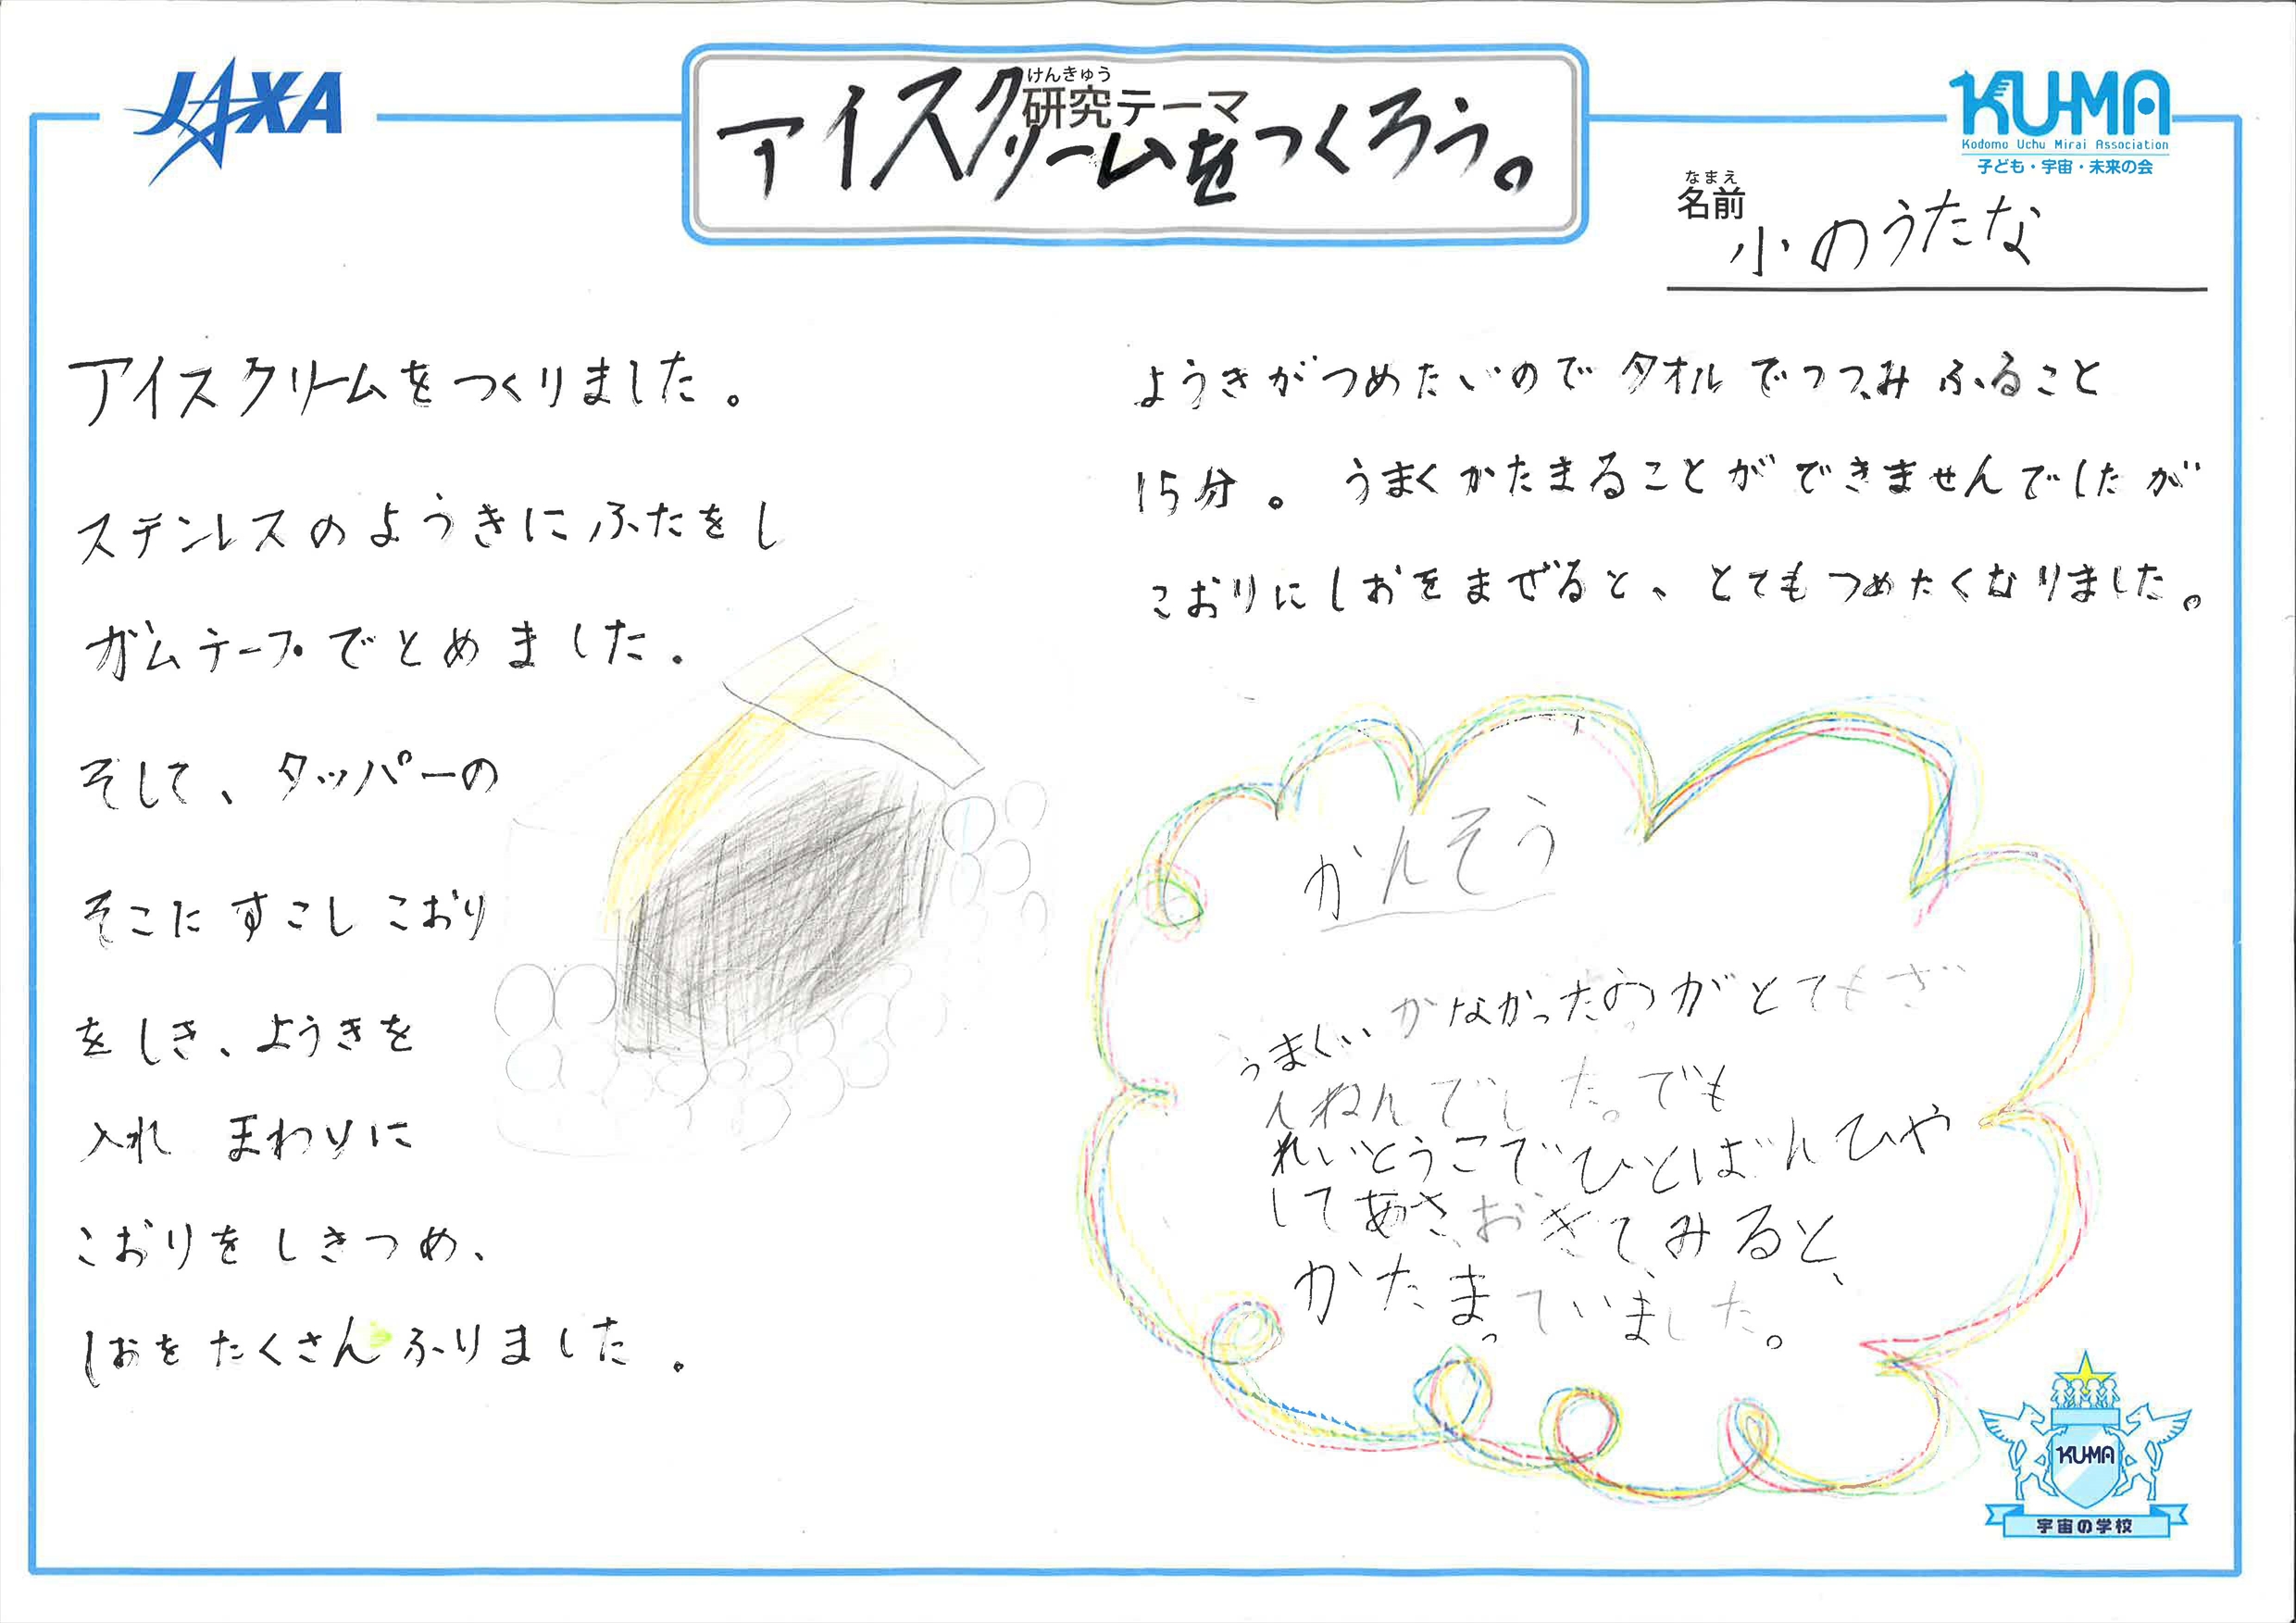 JAXA
けんきゅう
研究テーマ
アイスクリームをつくろう。
KUMA
Kodomo Uchu Mirai Association
子ども・宇宙・未来の会
なまえ
名前
小のうたな
アイスクリームをつくりました。
ステンレスのようきにふたをし
ガムテープでとめました.
そして、タッパーの
そこに すこし こおり
をしき、ようきを
入れ まわりに
こおりをしきつめ、
しおをたくさんふりました.
ようきがつめたいのでタオルでつつみふること
15分。うまくかたまることができませんでしたが
こおりにしおをまぜると、とてもつめたくなりました。
かんそう
うまくいかなかったのがとてもざ
んねんでした。でも
れいとうこでひとばんひや
してあさおきてみると、
かたまっていました。
KUMA
宇宙の学校